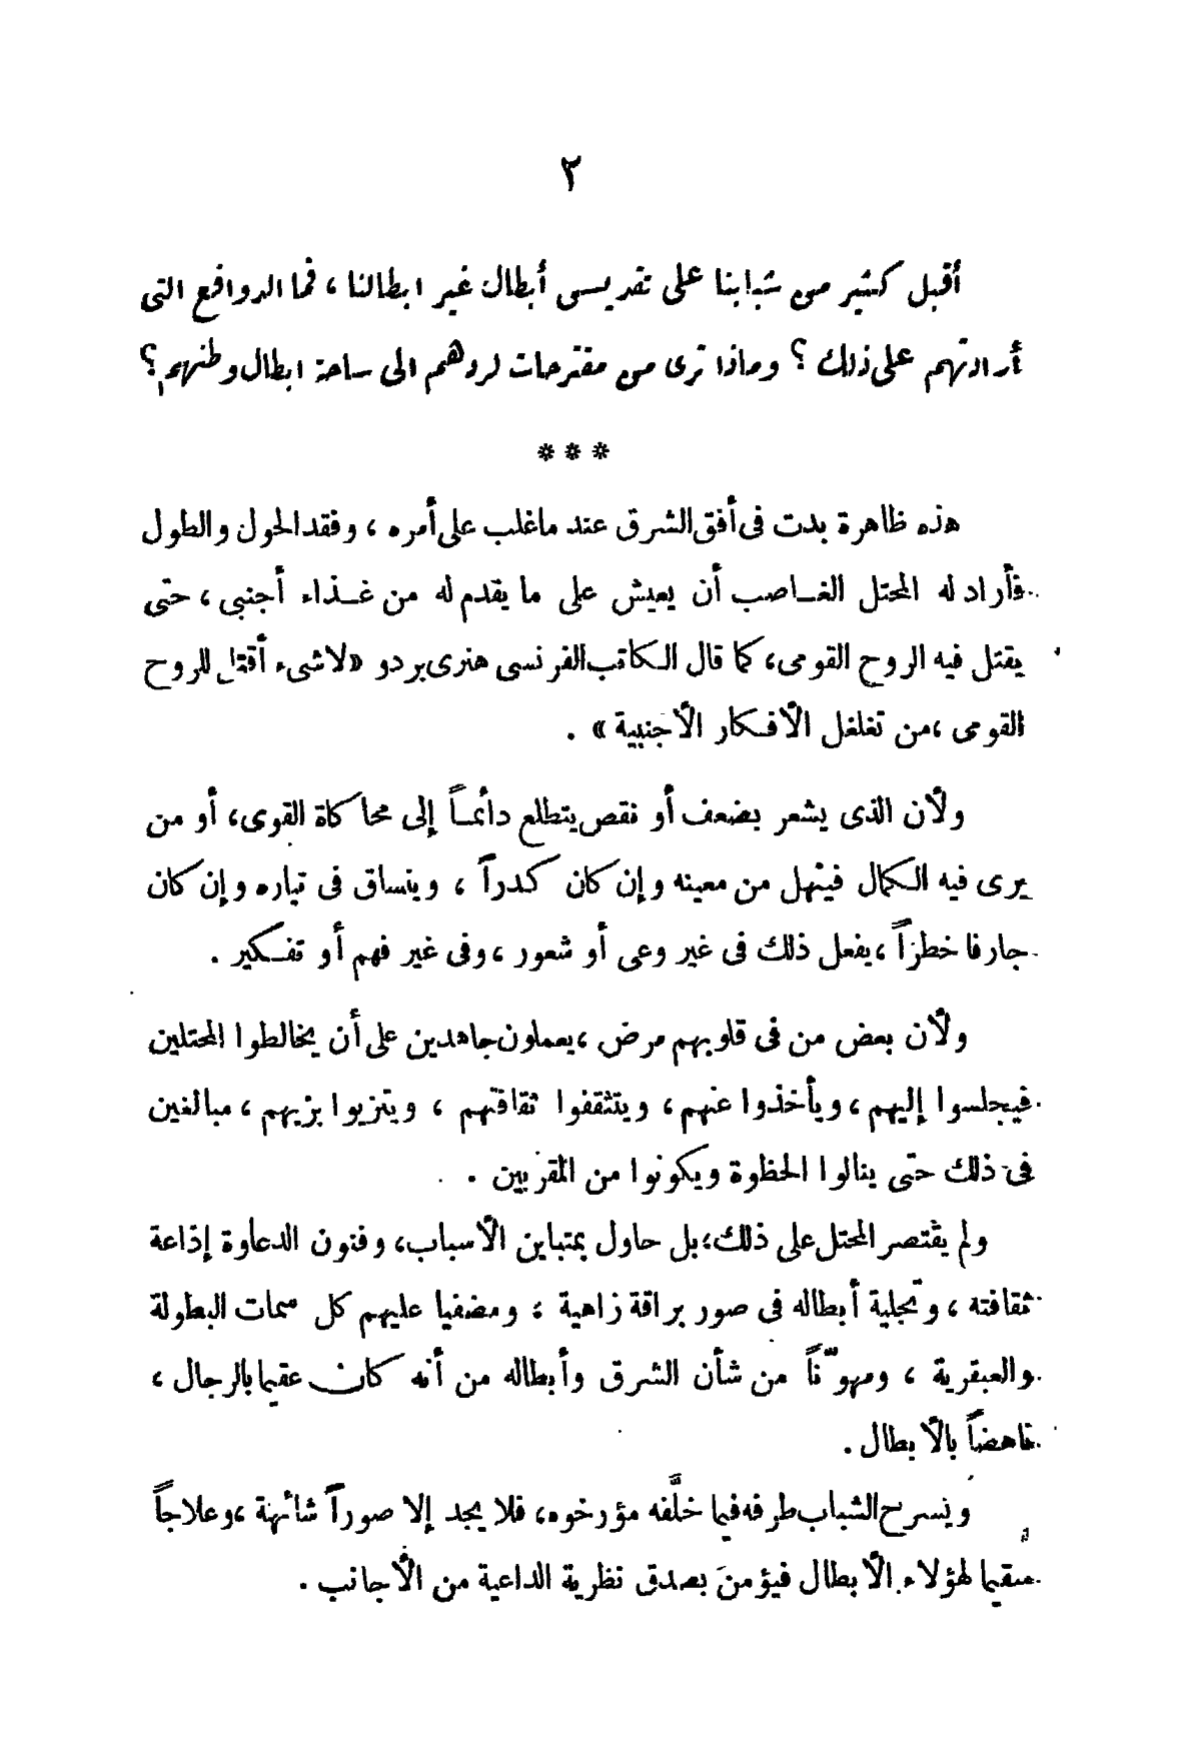 ٢
أقبل كثير من شبابنا على تقديس أبطال غير ابطالنا ، فما الدوافع التى
أرادتهم على ذلك ؟ وماذا ترى من مقترحات لردهم الى ساحة ابطال وطنهم ؟
* * *
هذه ظاهرة بدت فى أفق الشرق عند ماغلب على أمره ، وفقد الحول والطول
فأراد له المحتل الغاصب أن يعيش على ما يقدم له من غذاء أجنبى ، حتى
يقتل فيه الروح القومى، كما قال الكاتب الفرنسى هنرى بردو «لاشىء أقتل للروح
القومى ،من تغلغل الأفكار الأجنبية » .
ولأن الذى يشعر بضعف أو نقص يتطلع دائماً إلى محاكاة القوى، أو من
يرى فيه الكمال فينهل من معينه وإن كان كدراً ، وينساق فى تياره وإن كان
جارفا خطراً ،يفعل ذلك فى غير وعى أو شعور ،وفى غير فهم أو تفكير .
ولأن بعض من فى قلوبهم مرض ،يعملون جاهدين على أن يخالطوا المحتلين
فيجلسوا إليهم ، ويأخذوا عنهم ، ويتثقفوا ثقافتهم ، ويتزيوا بزيهم ، مبالغين
فى ذلك حتى ينالوا الحظوة ويكونوا من المقربين .
ولم يقتصر المحتل على ذلك؛ بل حاول بمتباين الأسباب، وفنون الدعاوة إذاعة
ثقافته ، وتجلية أبطاله فى صور براقة زاهية ؛ ومضفيا عليهم كل سمات البطولة
والعبقرية ، ومهوّناً من شأن الشرق وأبطاله من أنه كان عقيما بالرجال ،
ناهضاً بالأبطال .
ويسرح الشباب طرفه فيما خلَّفه مؤرخوه، فلا يجد إلا صوراً شائهة ،وعلاجاً
سقيما لهؤلاء الأبطال فيؤمنَ بصدق نظرية الداعية من الأجانب .